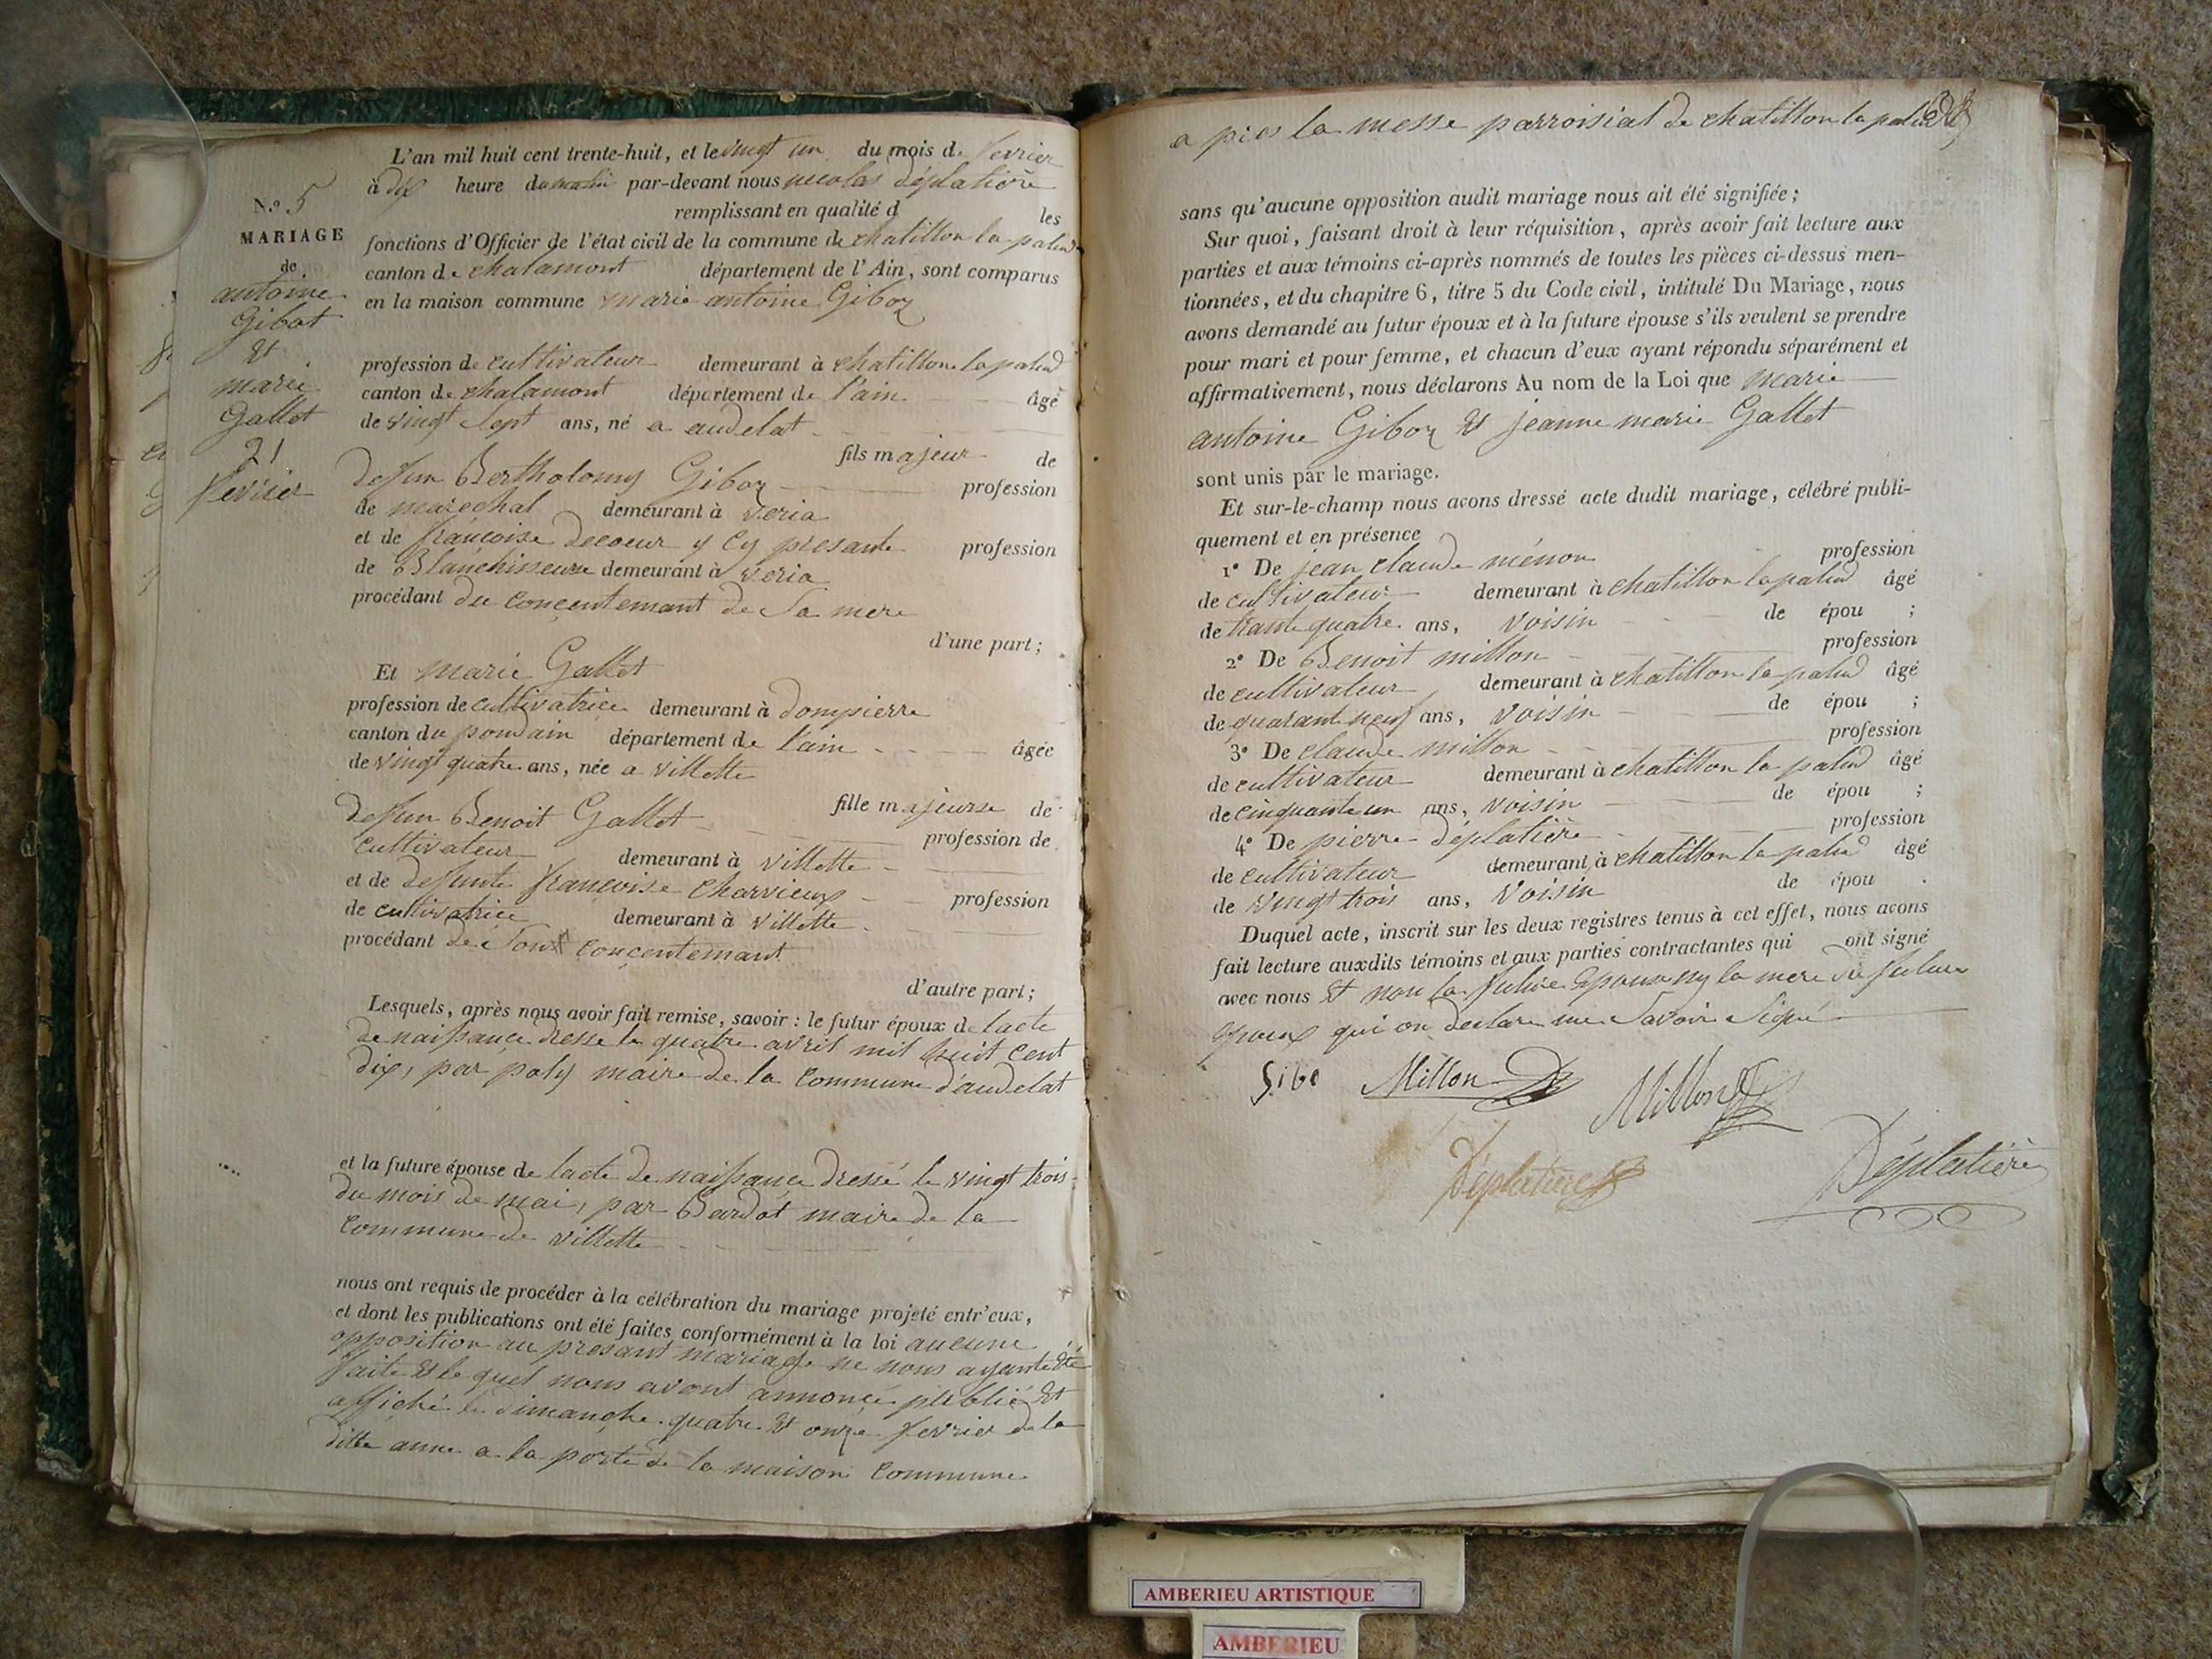 N.o 5
MARIAGE
de
antoine
Gibot
Et
marie
Gallet
21
fevrier
L'an mil huit cent trente-huit, et le vingt un du mois de fevrier
à dix heure du matin par-devant nous nicolas Déplatière
remplissant en qualité d les
fonctions d'Officier de l'état civil de la commune de chatillon la palud
canton de chalamont département de l'Ain, sont comparus
en la maison commune marie antoine Giboz
profession de cultivateur demeurant à chatillon la palud
canton de chalamont département de l'ain âgé
de vingt sept ans, né a audelat
fils majeur de
defun Bertholomy Giboz profession
de marechal demeurant à veria
et de francoise decoeur y cy presante profession
de Blanchisseuse demeurant à veria
procédant du conçentemant de Sa mere
d'une part;
Et marie Gallet
profession de cultivatrice demeurant à dompierre
canton du pondain département de l'ain âgée
de vingt quatre ans, née a villette
fille majeurse de
defun Benoit Gallet profession de
cultivateur demeurant à villette
et de defunte francoise charvieux profession
de cultivatrice demeurant à villette
procédant de Son conçentemant
d'autre part;
Lesquels, après nous avoir fait remise, savoir : le futur époux de lacte
de naissance dresse le quatre avril mil huit cent
dix, par poly maire de la commune d'audelat
et la future épouse de lacte de naissance dressé le vingt trois
du mois de mai, par Bardot maire de la
commune de villette
nous ont requis de procéder à la célébration du mariage projeté entr'eux,
et dont les publications ont été faites conformément à la loi aucune
opposition au presant mariage ne nous ayante été
faite et le quel nous avont annoncé plublié Et
affiché le dimanche quatre Et onze fevrier de la
ditte anne a la porte de la maison commune
a pres la messe parroisial de chatillon la palud
sans qu'aucune opposition audit mariage nous ait été signifiée;
Sur quoi, faisant droit à leur réquisition, après avoir fait lecture aux
parties et aux témoins ci-après nommés de toutes les pièces ci-dessus men-
tionnées, et du chapitre 6, titre 5 du Code civil, intitulé Du Mariage, nous
avons demandé au futur époux et à la future épouse s'ils veulent se prendre
pour mari et pour femme, et chacun d'eux ayant répondu séparément et
affirmativement, nous déclarons Au nom de la Loi que marie
antoine Giboz Et jeanne marie Gallet
sont unis par le mariage.
Et sur-le-champ nous avons dressé acte dudit mariage, célébré publi-
quement et en présence
1° De jean claude ménon profession
de cultivateur demeurant à chatillon la palud âgé
de trante quatre ans, voisin de épou ;
2° De Benoit millon profession
de cultivateur demeurant à chatillon la palud âgé
de quarant neuf ans, voisin de épou ;
3° De claude millon profession
de cultivateur demeurant à chatillon la palud âgé
de cinquante un ans, voisin de épou ;
4° De pierre déplatière profession
de cultivateur demeurant à chatillon la palud âgé
de vingt trois ans, voisin de épou .
Duquel acte, inscrit sur les deux registres tenus à cet effet, nous avons
fait lecture auxdits témoins et aux parties contractantes qui ont signé
avec nous Et non la future Epouse ny la mere du future
Epoux qui on declare ne Savoir Signé
Gibo Millon Millon
Déplatière Déplatière
AMBERIEU ARTISTIQUE
AMBERIEU